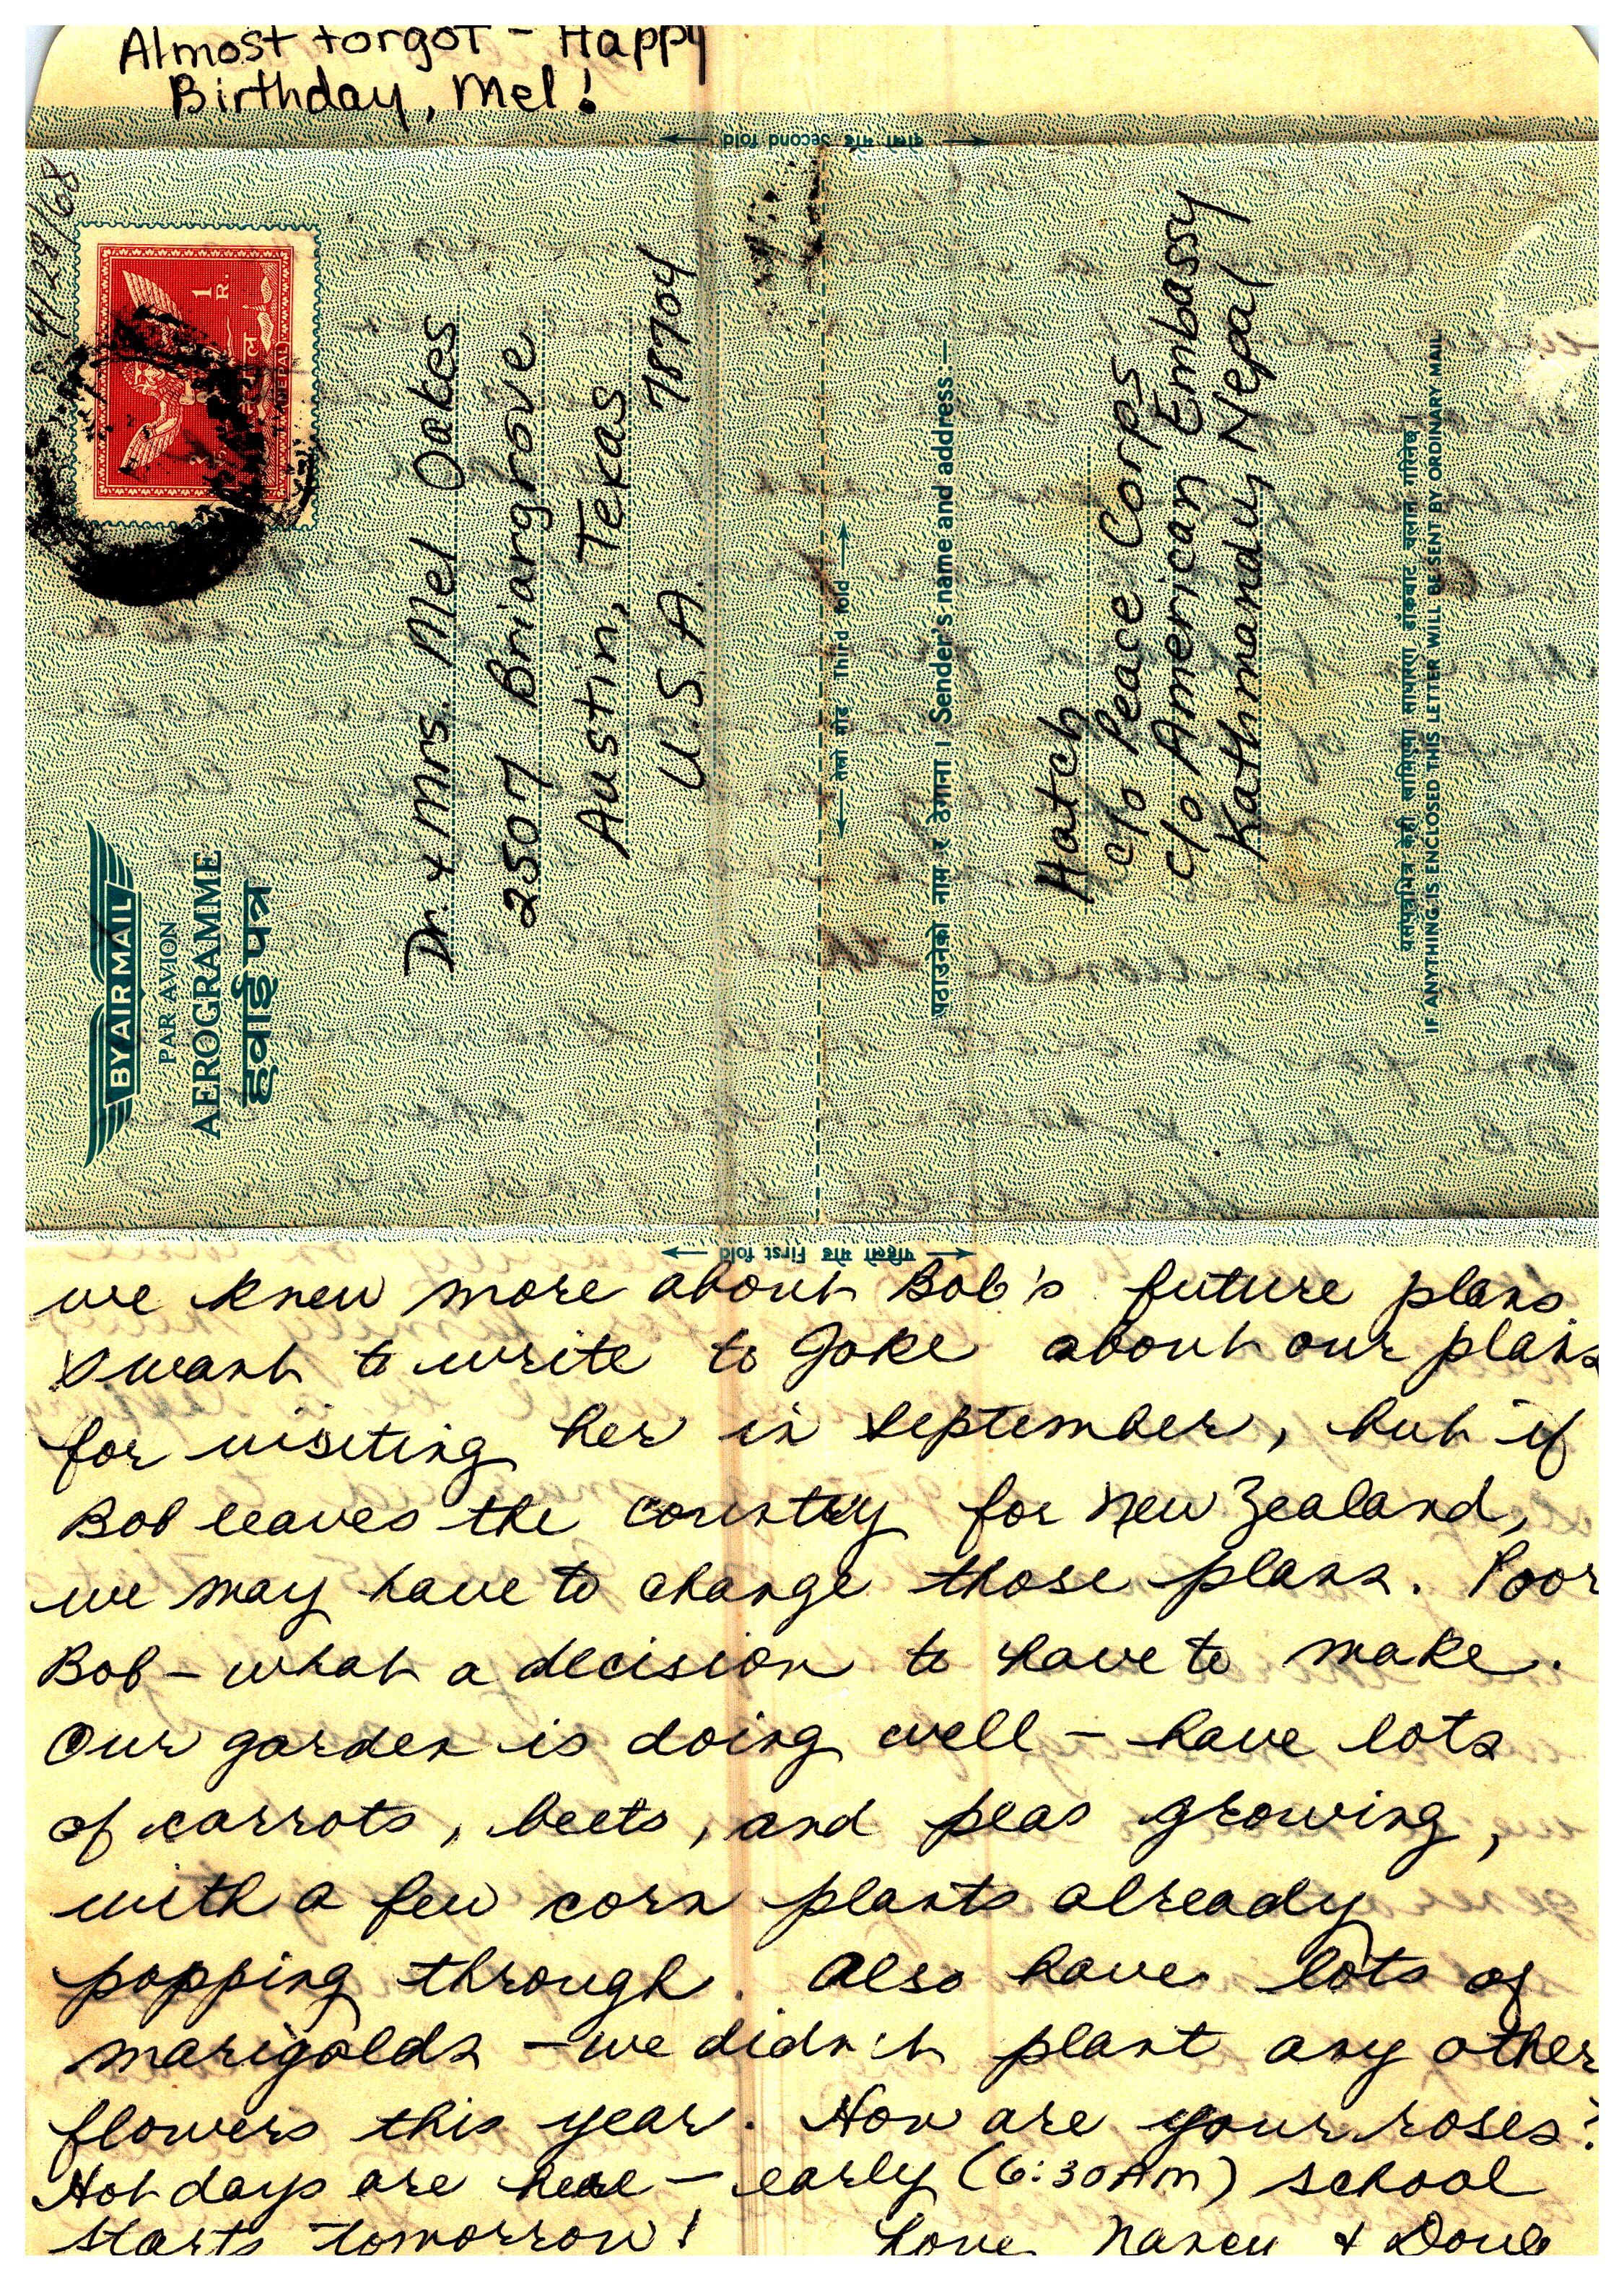 Almost forgot - Happy
Birthday, Mel!
दोस्रो मोड Second fold
4/29/68
1
R.
नेपाल
NEPAL
BY AIR MAIL
PAR AVION
AEROGRAMME
हवाई पत्र
Dr. & Mrs. Mel Oakes
2507 Briargrove
Austin, Texas
78704
U.S.A.
तेस्रो मोड Third fold
पठाउनेको नाम र ठेगाना । Sender's name and address:—
Hatch
c/o Peace Corps
c/o American Embassy
Kathmandu, Nepal
यसपत्रभित्र केही खामिएमा साधारण डाँकबाट चलान गरिनेछ ।
IF ANYTHING IS ENCLOSED THIS LETTER WILL BE SENT BY ORDINARY MAIL
पहिलो मोड First fold
we knew more about Bob's future plans
I want to write to Joke about our plans
for visiting her in September, but if
Bob leaves the country for New Zealand,
we may have to change those plans. Poor
Bob - what a decision to have to make.
Our garden is doing well - have lots
of carrots, beets, and peas growing,
with a few corn plants already
popping through. Also have lots of
marigolds - we didn't plant any other
flowers this year. How are your roses?
Hot days are here - early (6:30 AM) school
starts tomorrow! Love Nancy & Doug